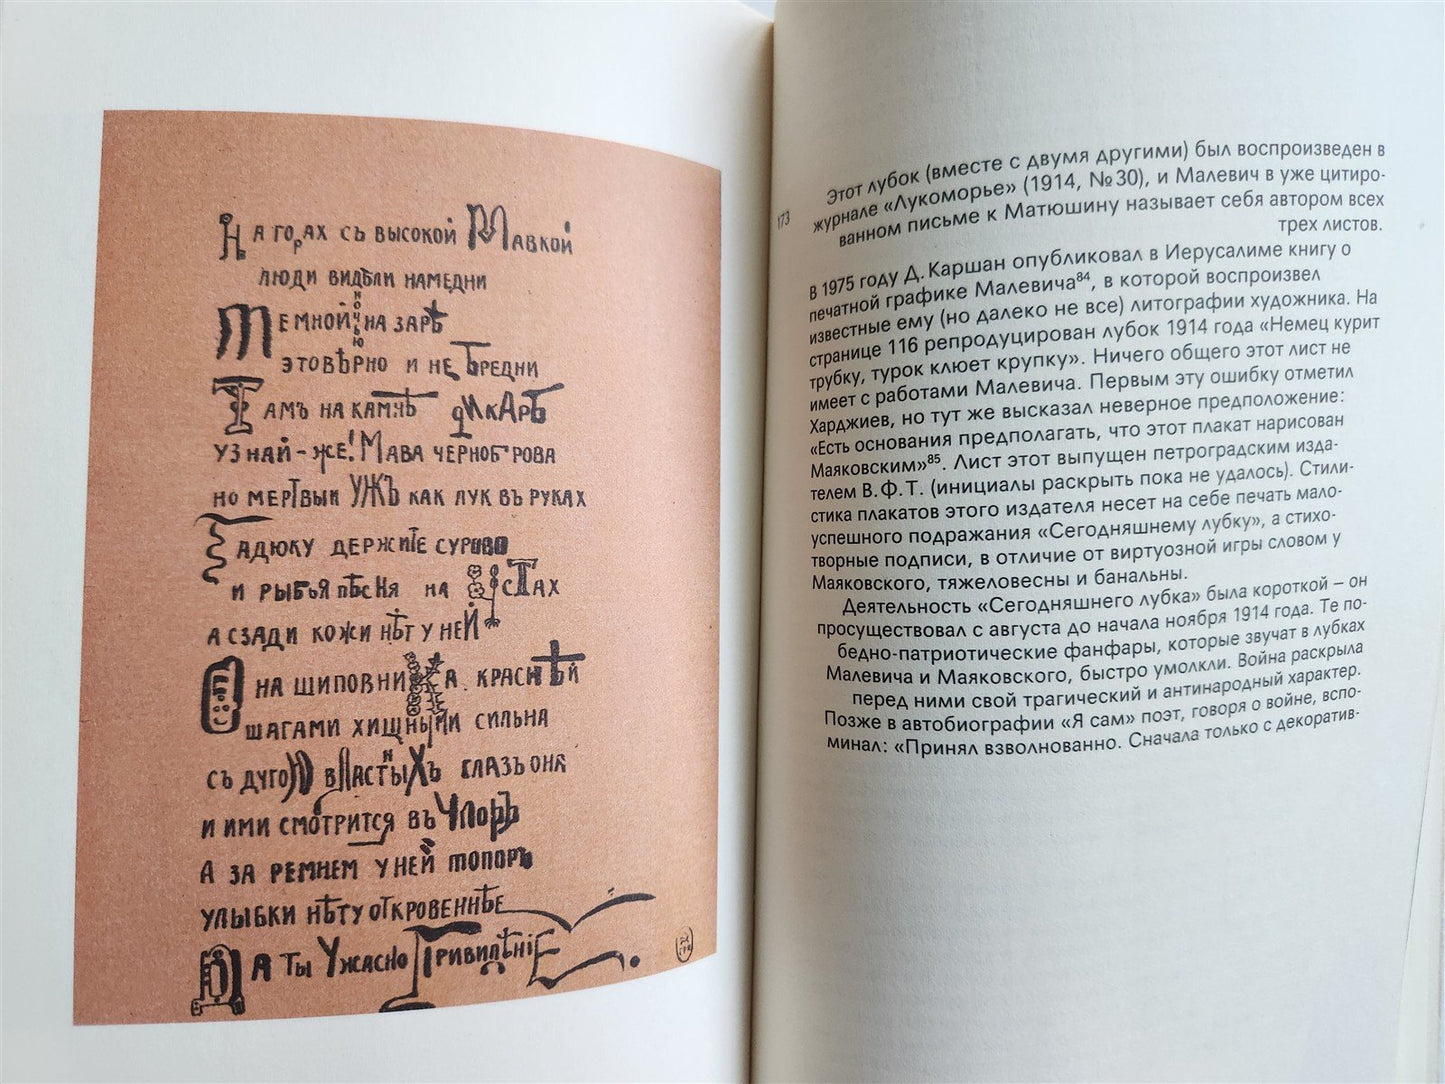 На горах съ высокой Мавкой
люди видѣли намедни
Темной ночью на зарѣ
это вѣрно и не бредни
Тамъ на камнѣ дикарѣ
узнай-же! Мава черноброва
но мертвый ужъ как лук въ руках
Гадюку держите сурово
и рыбья пѣсня на устах
а сзади кожи нѣт у ней
Она шиповника краснѣй
шагами хищными сильна
съ дугою властных глазъ она
и ими смотрится въ упоръ
а за ремнем у ней топоръ
улыбки нѣту откровеннѣе
Да ты ужасно привидѣніе.
173
Этот лубок (вместе с двумя другими) был воспроизведен в
журнале «Лукоморье» (1914, №30), и Малевич в уже цитиро-
ванном письме к Матюшину называет себя автором всех
трех листов.
В 1975 году Д. Каршан опубликовал в Иерусалиме книгу о
печатной графике Малевича⁸⁴, в которой воспроизвел
известные ему (но далеко не все) литографии художника. На
странице 116 репродуцирован лубок 1914 года «Немец курит
трубку, турок клюет крупку». Ничего общего этот лист не
имеет с работами Малевича. Первым эту ошибку отметил
Харджиев, но тут же высказал неверное предположение:
«Есть основания предполагать, что этот плакат нарисован
Маяковским»⁸⁵. Лист этот выпущен петроградским изда-
телем В.Ф.Т. (инициалы раскрыть пока не удалось). Стили-
стика плакатов этого издателя несет на себе печать мало-
успешного подражания «Сегодняшнему лубку», а стихо-
творные подписи, в отличие от виртуозной игры словом у
Маяковского, тяжеловесны и банальны.
Деятельность «Сегодняшнего лубка» была короткой – он
просуществовал с августа до начала ноября 1914 года. Те по-
бедно-патриотические фанфары, которые звучат в лубках
Малевича и Маяковского, быстро умолкли. Война раскрыла
перед ними свой трагический и антинародный характер.
Позже в автобиографии «Я сам» поэт, говоря о войне, вспо-
минал: «Принял взволнованно. Сначала только с декоратив-